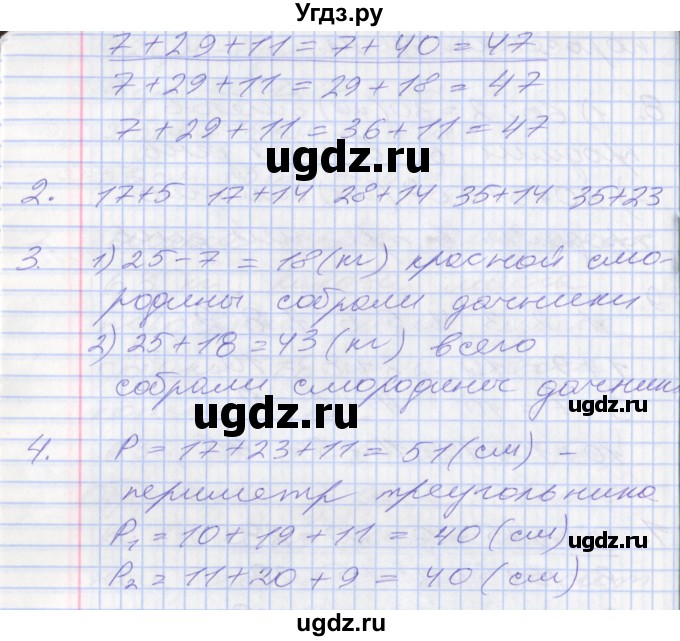 Угдз.ру
7 + 29 + 11 = 7 + 40 = 47
7 + 29 + 11 = 29 + 18 = 47
7 + 29 + 11 = 36 + 11 = 47
ugdz.ru
2. 17+5 17+14 28+14 35+14 35+23
3. 1) 25 - 7 = 18 (кг) красной смо-
родины собрали дачники
2) 25 + 18 = 43 (кг) всего
собрали смородины дачники
ugdz.ru
4. P = 17 + 23 + 11 = 51 (см) -
периметр треугольника
P₁ = 10 + 19 + 11 = 40 (см)
P₂ = 11 + 20 + 9 = 40 (см)
ugdz.ru